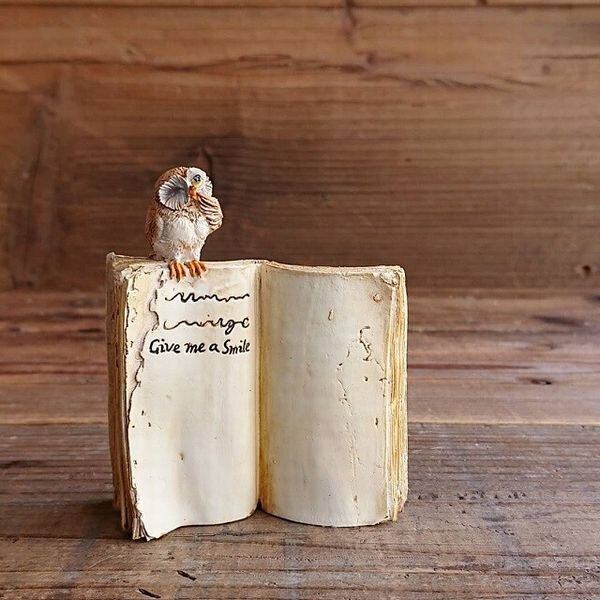 Give me a Smile